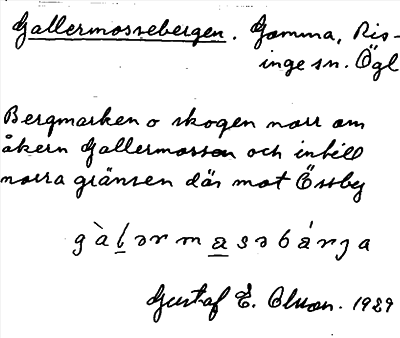 Gallermossebergen. Gomma, Ris-
inge sn. Ögl
Bergmarken o skogen norr om
åkern Gallermossen och intill
norra gränsen där mot Össby
gàlərmasəbárja
Gustaf E. Olson. 1929